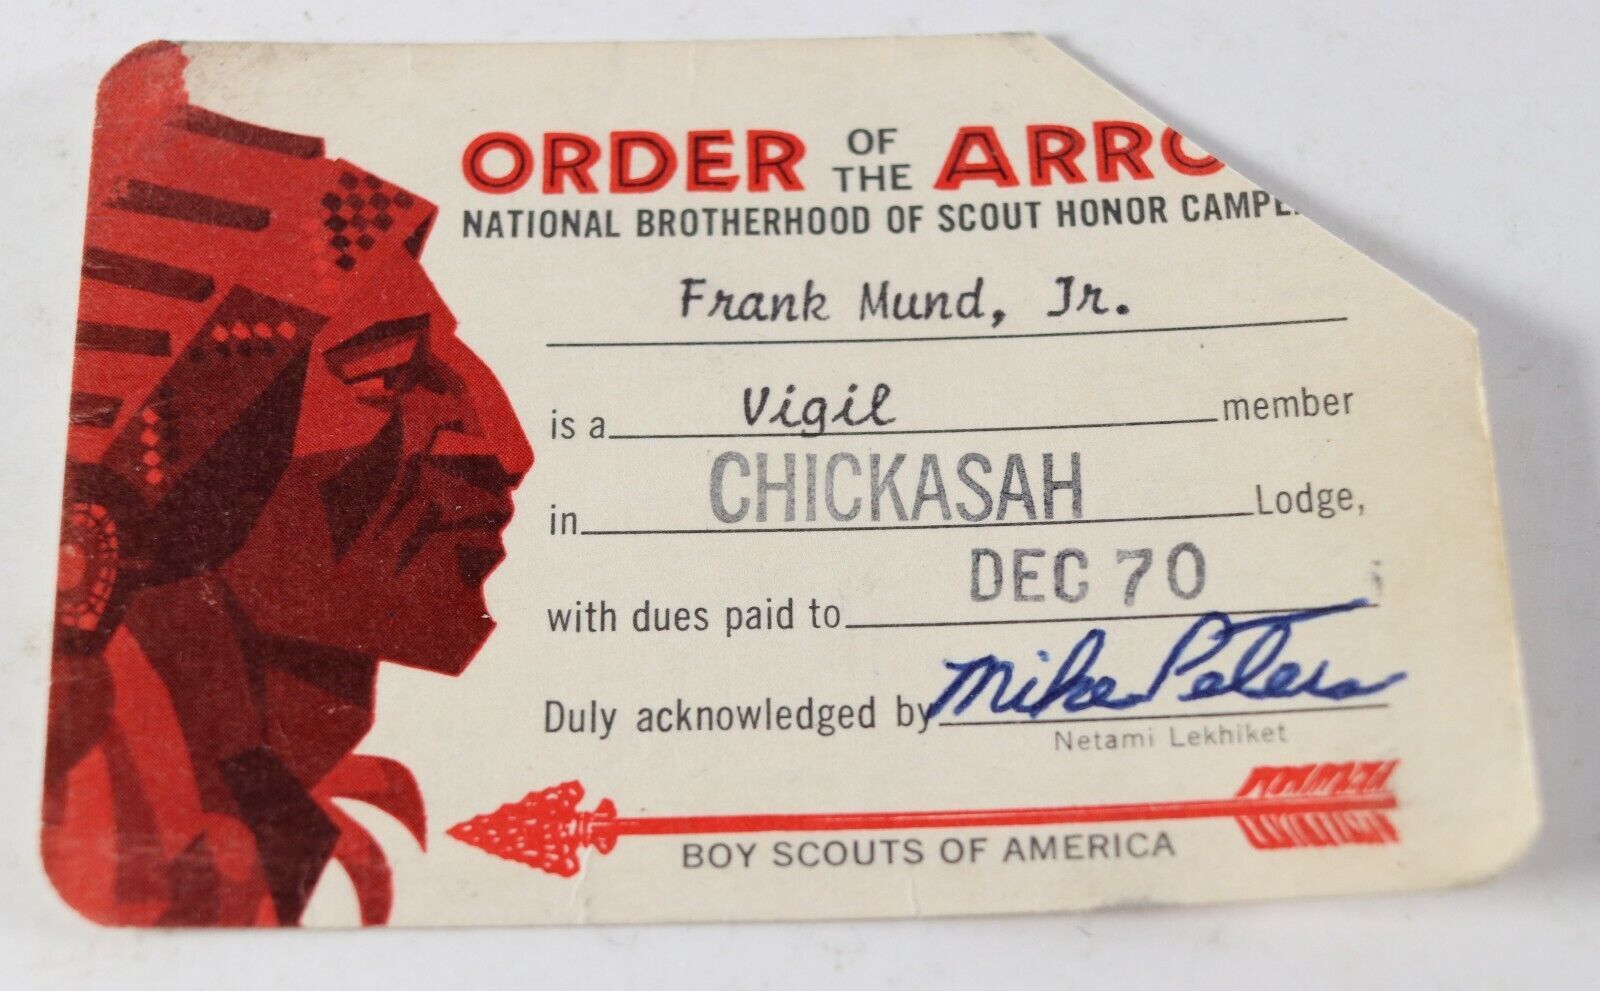 ORDER OF THE ARRO
NATIONAL BROTHERHOOD OF SCOUT HONOR CAMPE
Frank Mund, Jr.
is a Vigil member
in CHICKASAH Lodge,
with dues paid to DEC 70
Duly acknowledged by Mike Peters
Netami Lekhiket
BOY SCOUTS OF AMERICA